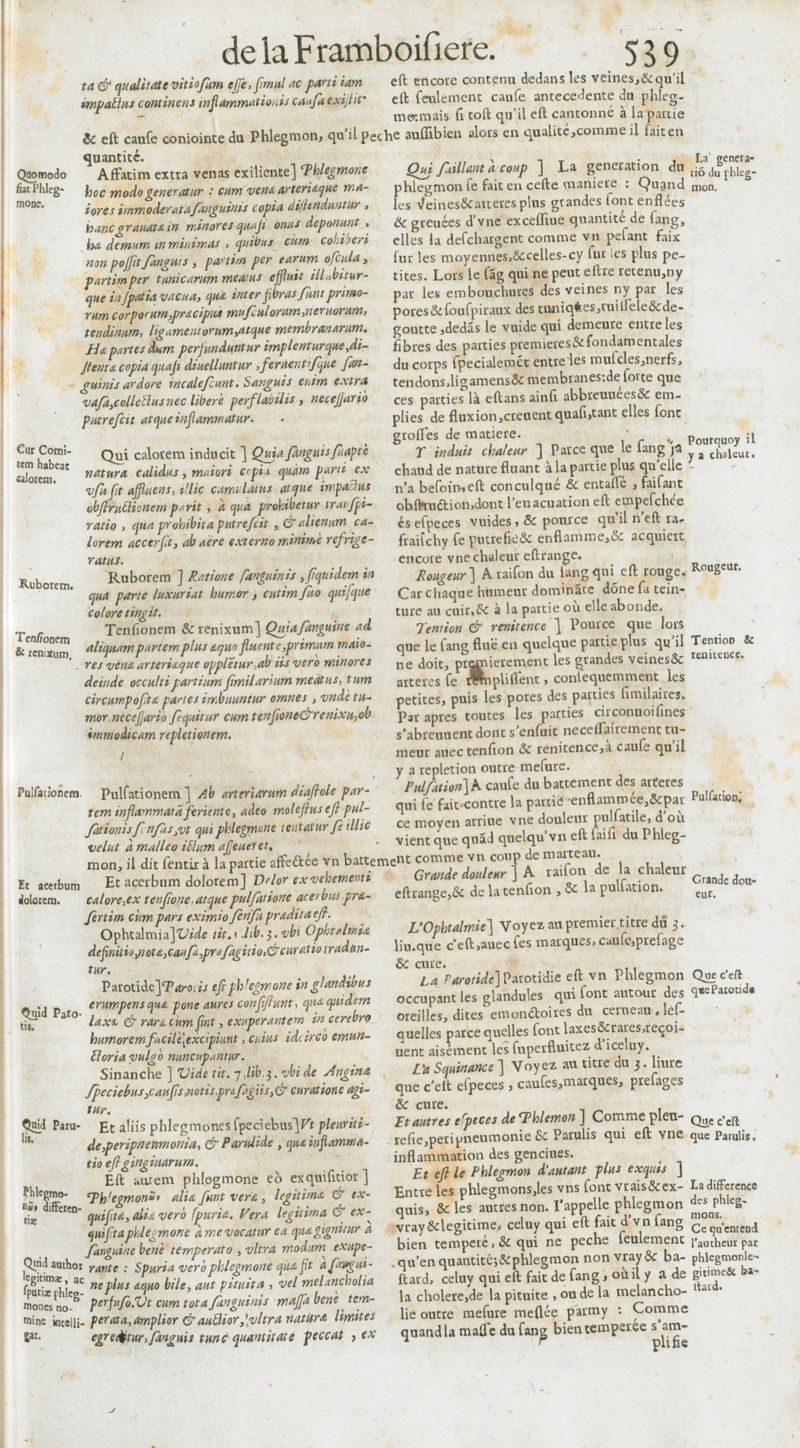 de la Framboiſiere. 539
ta & qualitate vitioſum eſſe, ſimul ac parti iam
impactus continens inflammationis cauſa exiſtit
& eſt cauſe coniointe du Phlegmon, qu'il peche auſſibien alors en qualité, comme il fait en
quantité.
Quomodo
fiat Phleg-
mone.
Affatim extra venas exiliente] Phlegmone
hoc modo generatur : cum venæ arteriæque ma-
iores immoderata ſanguinis copia diſtenduntur,
hanc grauatæ in minores quaſi onus deponunt,
hæ demum in minimas, quibus cùm cohiberi
non poſſit ſanguis, partim per earum oſcula,
partim per tunicarum meatus effluit illabitur-
que in ſpatia vacua, quæ inter fibras ſunt primo-
rum corporum, præcipuè muſculorum, neruorum,
tendinum, ligamentorum, atque membranarum.
Hæ partes dum perfunduntur implenturque, di-
ſtentæ copia quaſi diuelluntur, feruentiſque ſan-
guinis ardore incaleſcunt. Sanguis enim extra
vaſa, collectus nec liberè perflabilis, neceſſariò
putreſcit atque inflammatur.
Cur Comi-
tem habeat
calorem.
Qui calorem inducit] Quia ſanguis ſuaptè
natura calidus, maiori copia quàm parti ex
vſu ſit affluens, illic cumulatus atque impactus
obſtructionem parit, à qua prohibetur tranſpi-
ratio, qua prohibita putreſcit, & alienum ca-
lorem accerſit, ab aëre externo minimè refrige-
ratus.
Ruborem.
Ruborem] Ratione ſanguinis, ſiquidem in
qua parte luxuriat humor, cutim ſuo quiſque
colore tingit.
Tenſionem
& renixum.
Tenſionem & renixum] Quia ſanguine ad
aliquam partem plus æquo fluente, primum maio-
res venæ arteriæque oppletur, ab iis verò minores
deinde occulti partium ſimilarium meatus, tum
circumpoſitæ partes imbuuntur omnes, vnde tu-
mor neceſſario ſequitur cum tenſione & renixu, ob
immodicam repletionem.
Pulſationem.
Pulſationem] Ab arteriarum diaſtole par-
tem inflammatã feriente, adeo moleſtus eſt pul-
ſationis ſenſus, vt qui phlegmone tentatur ſe illic
velut à malleo ictum aſſeueret.
mon, il dit ſentir à la partie affectée vn battement comme vn coup de marteau.
Et acerbum
dolorem.
Et acerbum dolorem] Dolor ex vehementi
calore, ex tenſione, atque pulſatione acerbus, præ-
ſertim cùm pars eximio ſenſu prædita eſt.
Ophtalmia] Vide tit. 1. lib. 3. vbi Ophtalmiæ
definitio, notæ, cauſæ, præſagitio, & curatio tradun-
tur.
Quid Paro-
tis.
Parotide] Parotis eſt phlegmone in glandibus
erumpens quæ pone aures conſiſtunt, quæ quidem
laxæ & raræ cum ſint, exuperantem in cerebro
humorem facilè excipiunt, cuius idcircò emun-
ctoria vulgò nuncupantur.
Sinanche] Vide tit. 7. lib. 3. vbi de Anginæ
ſpeciebus, cauſis, notis, præſagiis, & curatione agi-
tur.
Quid Paru-
lis.
Et aliis phlegmones ſpeciebus] Vt pleuriti-
de, peripneumonia, & Parulide, quæ inflamma-
tio eſt gingiuarum.
Eſt autem phlogmone eò exquiſitior]
Phlegmo-
nῶν differen-
tiæ
Phlegmonῶν aliæ ſunt veræ, legitimæ & ex-
quiſitæ, aliæ verò ſpuriæ. Vera legitima & ex-
quiſita phlegmone à me vocatur ea quæ gignitur à
ſanguine benè temperato, vltra modum exupe-
Quid author
legitimæ, ac
ſpuriæ phleg-
mones no-
mine intelli-
gat.
rante : Spuria verò phlegmone quæ fit à ſangui-
ne plus æquo bile, aut pituita, vel melancholia
perfuſo. Vt cum tota ſanguinis maſſa benè tem-
perata, amplior & auctior, vltra naturæ limites
egreditur, ſanguis tunc quantitate peccat, ex
eſt encore contenu dedans les veines, & qu'il
eſt ſeulement cauſe antecedente du phleg-
me: mais ſi toſt qu'il eſt cantonné à la partie
Qui ſaillant à coup] La generation du
phlegmon ſe fait en ceſte maniere : Quand
les veines & arteres plus grandes ſont enflées
& greuées d'vne exceſſiue quantité de ſang,
elles la deſchargent comme vn peſant faix
ſur les moyennes, & celles-cy ſur les plus pe-
tites. Lors le ſãg qui ne peut eſtre retenu, ny
par les embouchures des veines ny par les
pores & ſouſpiraux des tuniques, ruiſſele & de-
goutte, dedãs le vuide qui demeure entre les
fibres des parties premieres & fondamentales
du corps ſpecialemẽt entre les muſcles, nerfs,
tendons, ligamens & membranes: de ſorte que
ces parties là eſtans ainſi abbreuuées & em-
plies de fluxion, creuent quaſi, tant elles ſont
groſſes de matiere.
La genera-
tiõ du phleg-
mon.
Y induit chaleur] Parce que le ſang ja
chaud de nature fluant à la partie plus qu'elle
n'a beſoin, eſt conculqué & entaſſé, faiſant
obſtruction, dont l'euacuation eſt empeſchée
és eſpeces vuides, & pource qu'il n'eſt ra-
fraiſchy ſe putrefie & enflamme, & acquiert
encore vne chaleur eſtrange.
Pourquoy il
y a chaleur.
Rougeur] A raiſon du ſang qui eſt rouge.
Car chaque humeur dominãte dõne ſa tein-
ture au cuir, & à la partie où elle abonde.
Rougeur.
Tention & renitence] Pource que lors
que le ſang fluë en quelque partie plus qu'il
ne doit, premierement les grandes veines &
arteres ſe rempliſſent, conſequemment les
petites, puis les pores des parties ſimilaires.
Par apres toutes les parties circonuoiſines
s'abreuuent dont s'enſuit neceſſairement tu-
meur auec tenſion & renitence, à cauſe qu'il
y a repletion outre meſure.
Tention &
renitence.
Pulſation] A cauſe du battement des arteres
qui ſe fait contre la partie enflammée, & par
ce moyen arriue vne douleur pulſatile, d'où
vient que quãd quelqu'vn eſt ſaiſi du Phleg-
Pulſation.
Grande douleur] A raiſon de la chaleur
eſtrange, & de la tenſion, & la pulſation.
Grande dou-
eur.
L'Ophtalmie] Voyez au premier titre du 3.
liu. que c'eſt, auec ſes marques, cauſe, preſage
& cure.
La Parotide] Parotidie eſt vn Phlegmon
occupant les glandules qui ſont autour des
oreilles, dites emonctoires du cerueau, leſ-
quelles parce quelles ſont laxes & rares, reçoi-
uent aisément les ſuperfluitez d'iceluy.
Que c'eſt
que Parotide
La Squinance] Voyez au titre du 3. liure
que c'eſt eſpeces, cauſes, marques, preſages
& cure.
Et autres eſpeces de Phlemon] Comme pleu-
reſie, peripneumonie & Parulis qui eſt vne
inflammation des genciues.
Que c'eſt
que Parulis.
Et eſt le Phlegmon d'autant plus exquis]
Entre les phlegmons, les vns ſont vrais & ex-
quis, & les autres non. I'appelle phlegmon
vray & legitime, celuy qui eſt fait d'vn ſang
bien temperé, & qui ne peche ſeulement
qu'en quantité; & phlegmon non vray & ba-
ſtard, celuy qui eſt fait de ſang, où il y a de
la cholere, de la pituite, ou de la melancho-
lie outre meſure meſlée parmy : Comme
quand la maſſe du ſang bien temperée s'am-
La difference
des phleg-
mons.
Ce qu'entend
l'autheur par
phlegmon le-
gitime & ba-
ſtard.
plifie